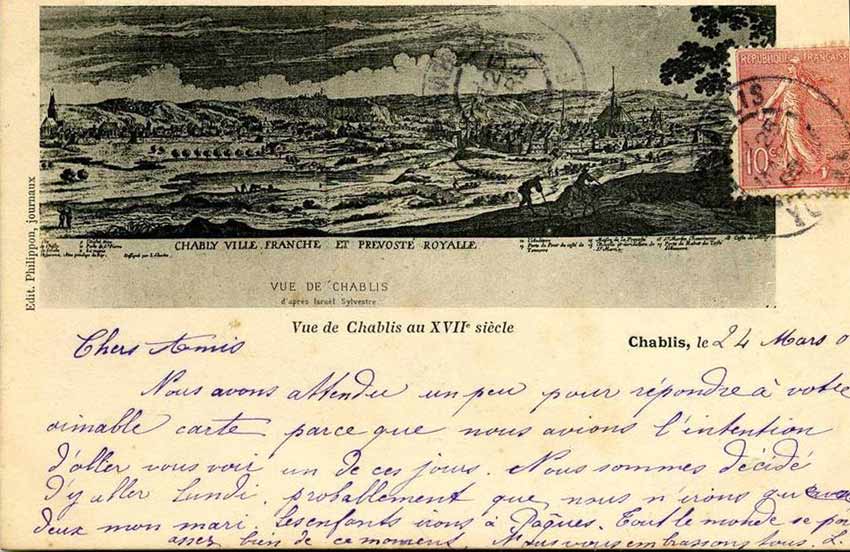 RÉPUBLIQUE FRANÇAISE
10c
CHABLY VILLE FRANCHE ET PREVOSTÉ ROYALLE
VUE DE CHABLIS
d'après Israël Sylvestre
Edit. Philippon, journaux
Vue de Chablis au XVIIe siècle
Chablis, le 24 Mars 0
Chers Amis
Nous avons attendu un peu pour répondre à votre
aimable carte parce que nous avions l'intention
d'aller vous voir un de ces jours. Nous sommes décidé
d'y aller lundi, probablement que nous n'irons qu
deux mon mari. Les enfants irons à Pâques. Tout le monde se por
assez bien de ce moment. Nous vous embrassons tous. L.